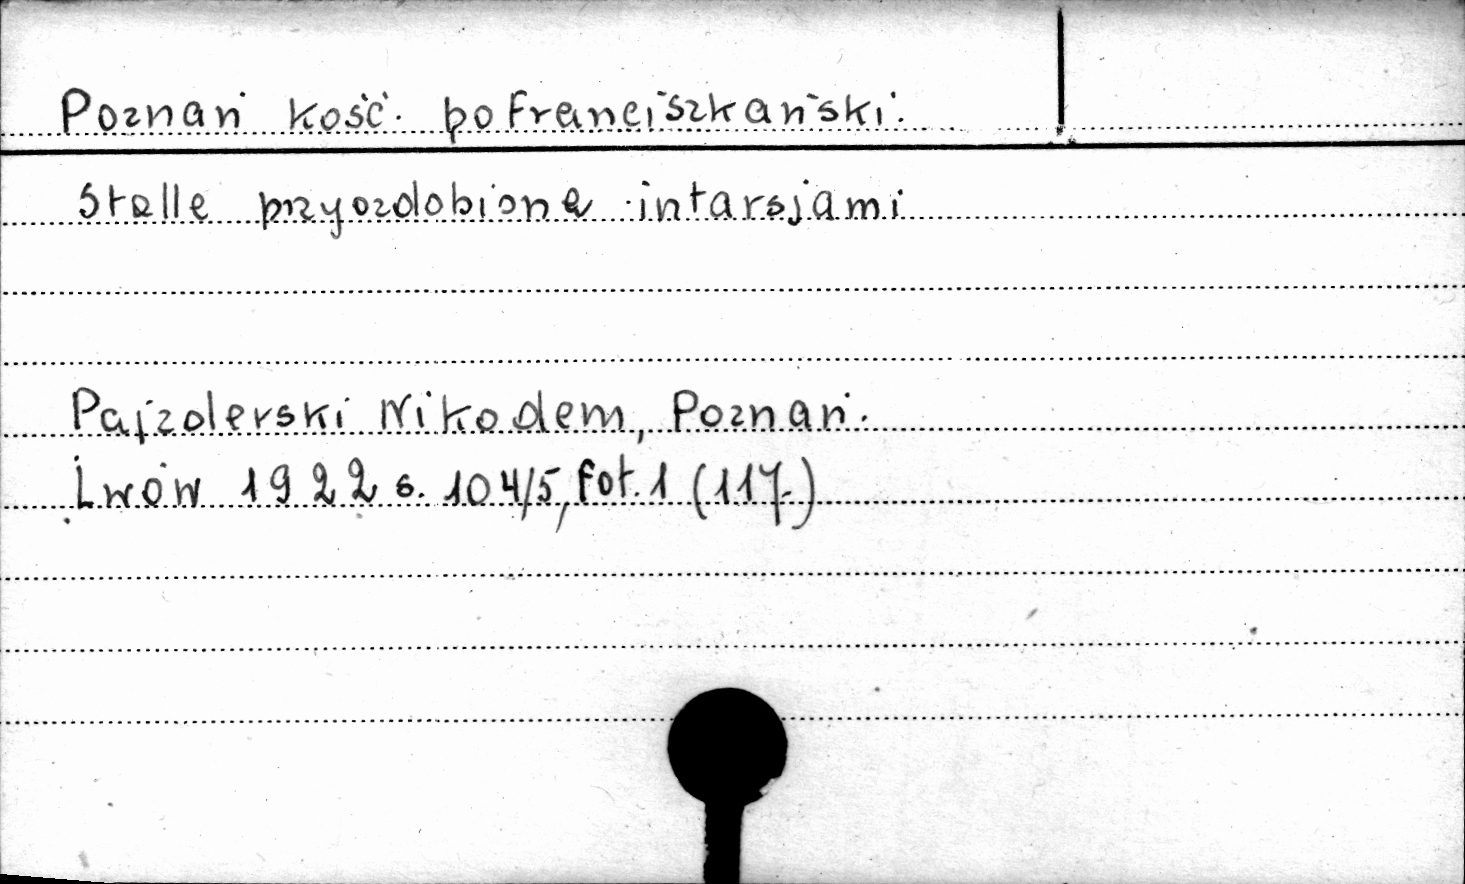 Poznań kość. pofranciszkański.
Stalle przyozdobione intarsjami
Pajzderski Nikodem, Poznań.
Lwów 1922 s. 104/5, fot. 1 (117.)